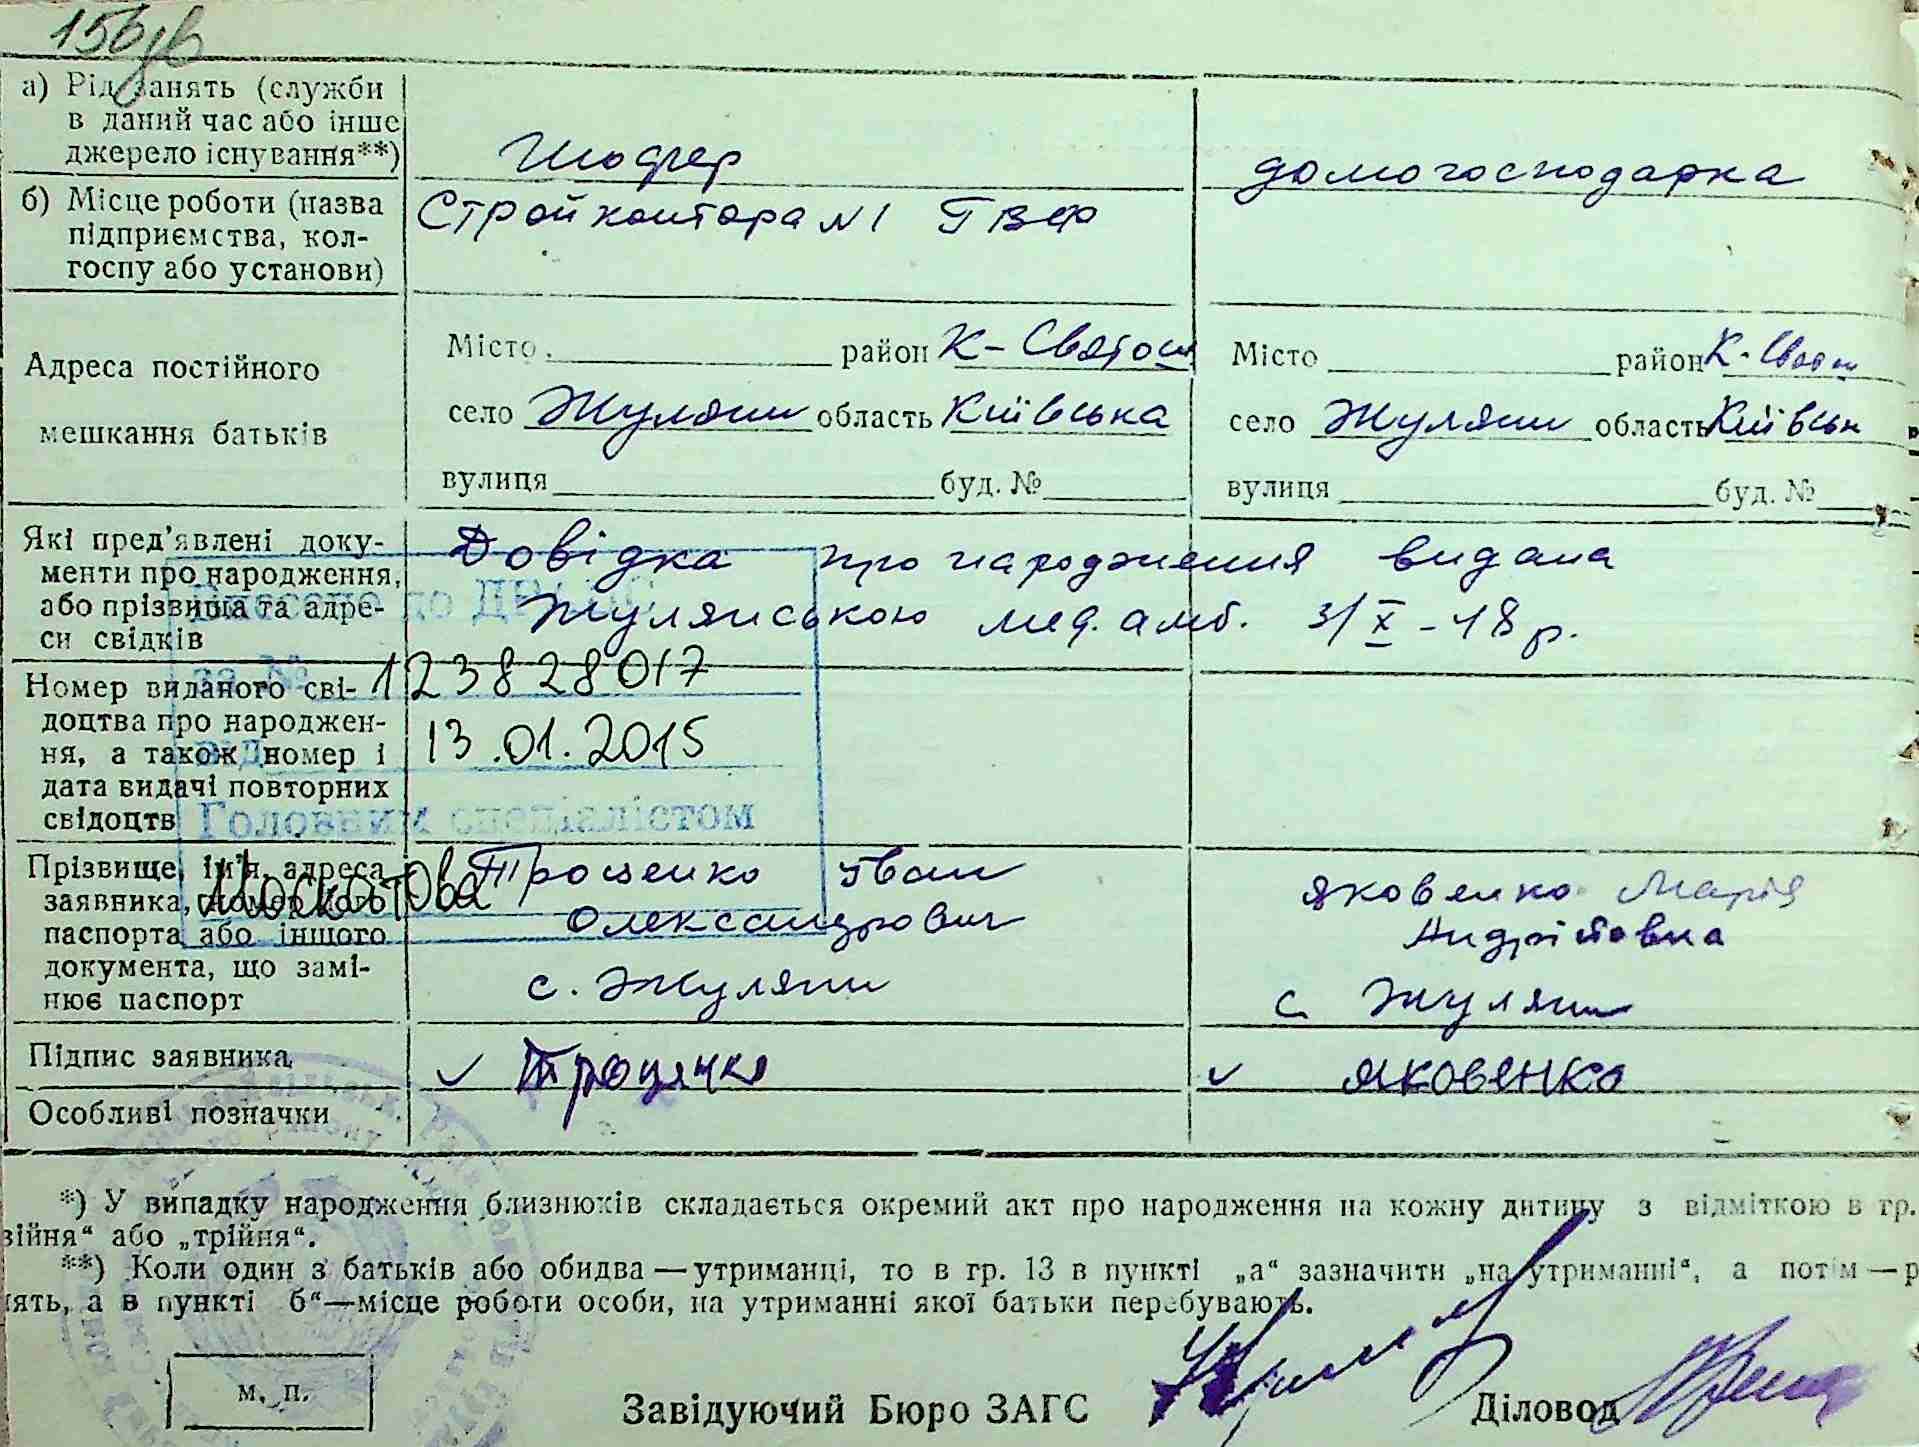 156
а) Рід занять (служби
в даний час або інше
джерело існування**)
Шофер
домогосподарка
б) Місце роботи (назва
підприємства, кол-
госпу або установи)
Стройконтора №1 ГВФ
Адреса постійного
мешкання батьків
Місто район К-Святош
село Жуляни область Київська
вулиця буд. №
Місто район К-Святош
село Жуляни область Київськ
вулиця буд. №
Які пред'явлені доку-
менти про народження,
або прізвища та адре-
си свідків
Довідка про народження видана
Жулянською мед. амб. 31/X-48 р.
Внесено до ДРАЦС
за №
від
Головним спеціалістом
Номер виданого сві-
доцтва про народжен-
ня, а також номер і
дата видачі повторних
свідоцтв
123828017
13.01.2015
Москатова
Прізвище, ім'я, адреса
заявника, номер його
паспорта або іншого
документа, що замі-
нює паспорт
Троценко Іван
Олександрович
с. Жуляни
Яковенко Марія
Андріївна
с Жуляни
Підпис заявника
Троценко
Яковенко
Особливі позначки
*) У випадку народження близнюків складається окремий акт про народження на кожну дитину з відміткою в гр.
війня“ або „трійня“.
**) Коли один з батьків або обидва — утриманці, то в гр. 13 в пункті „а“ зазначити „на утриманні“, а потім — р
ять, а в пункті б“—місце роботи особи, на утриманні якої батьки перебувають.
м. п.
Завідуючий Бюро ЗАГС
Діловод